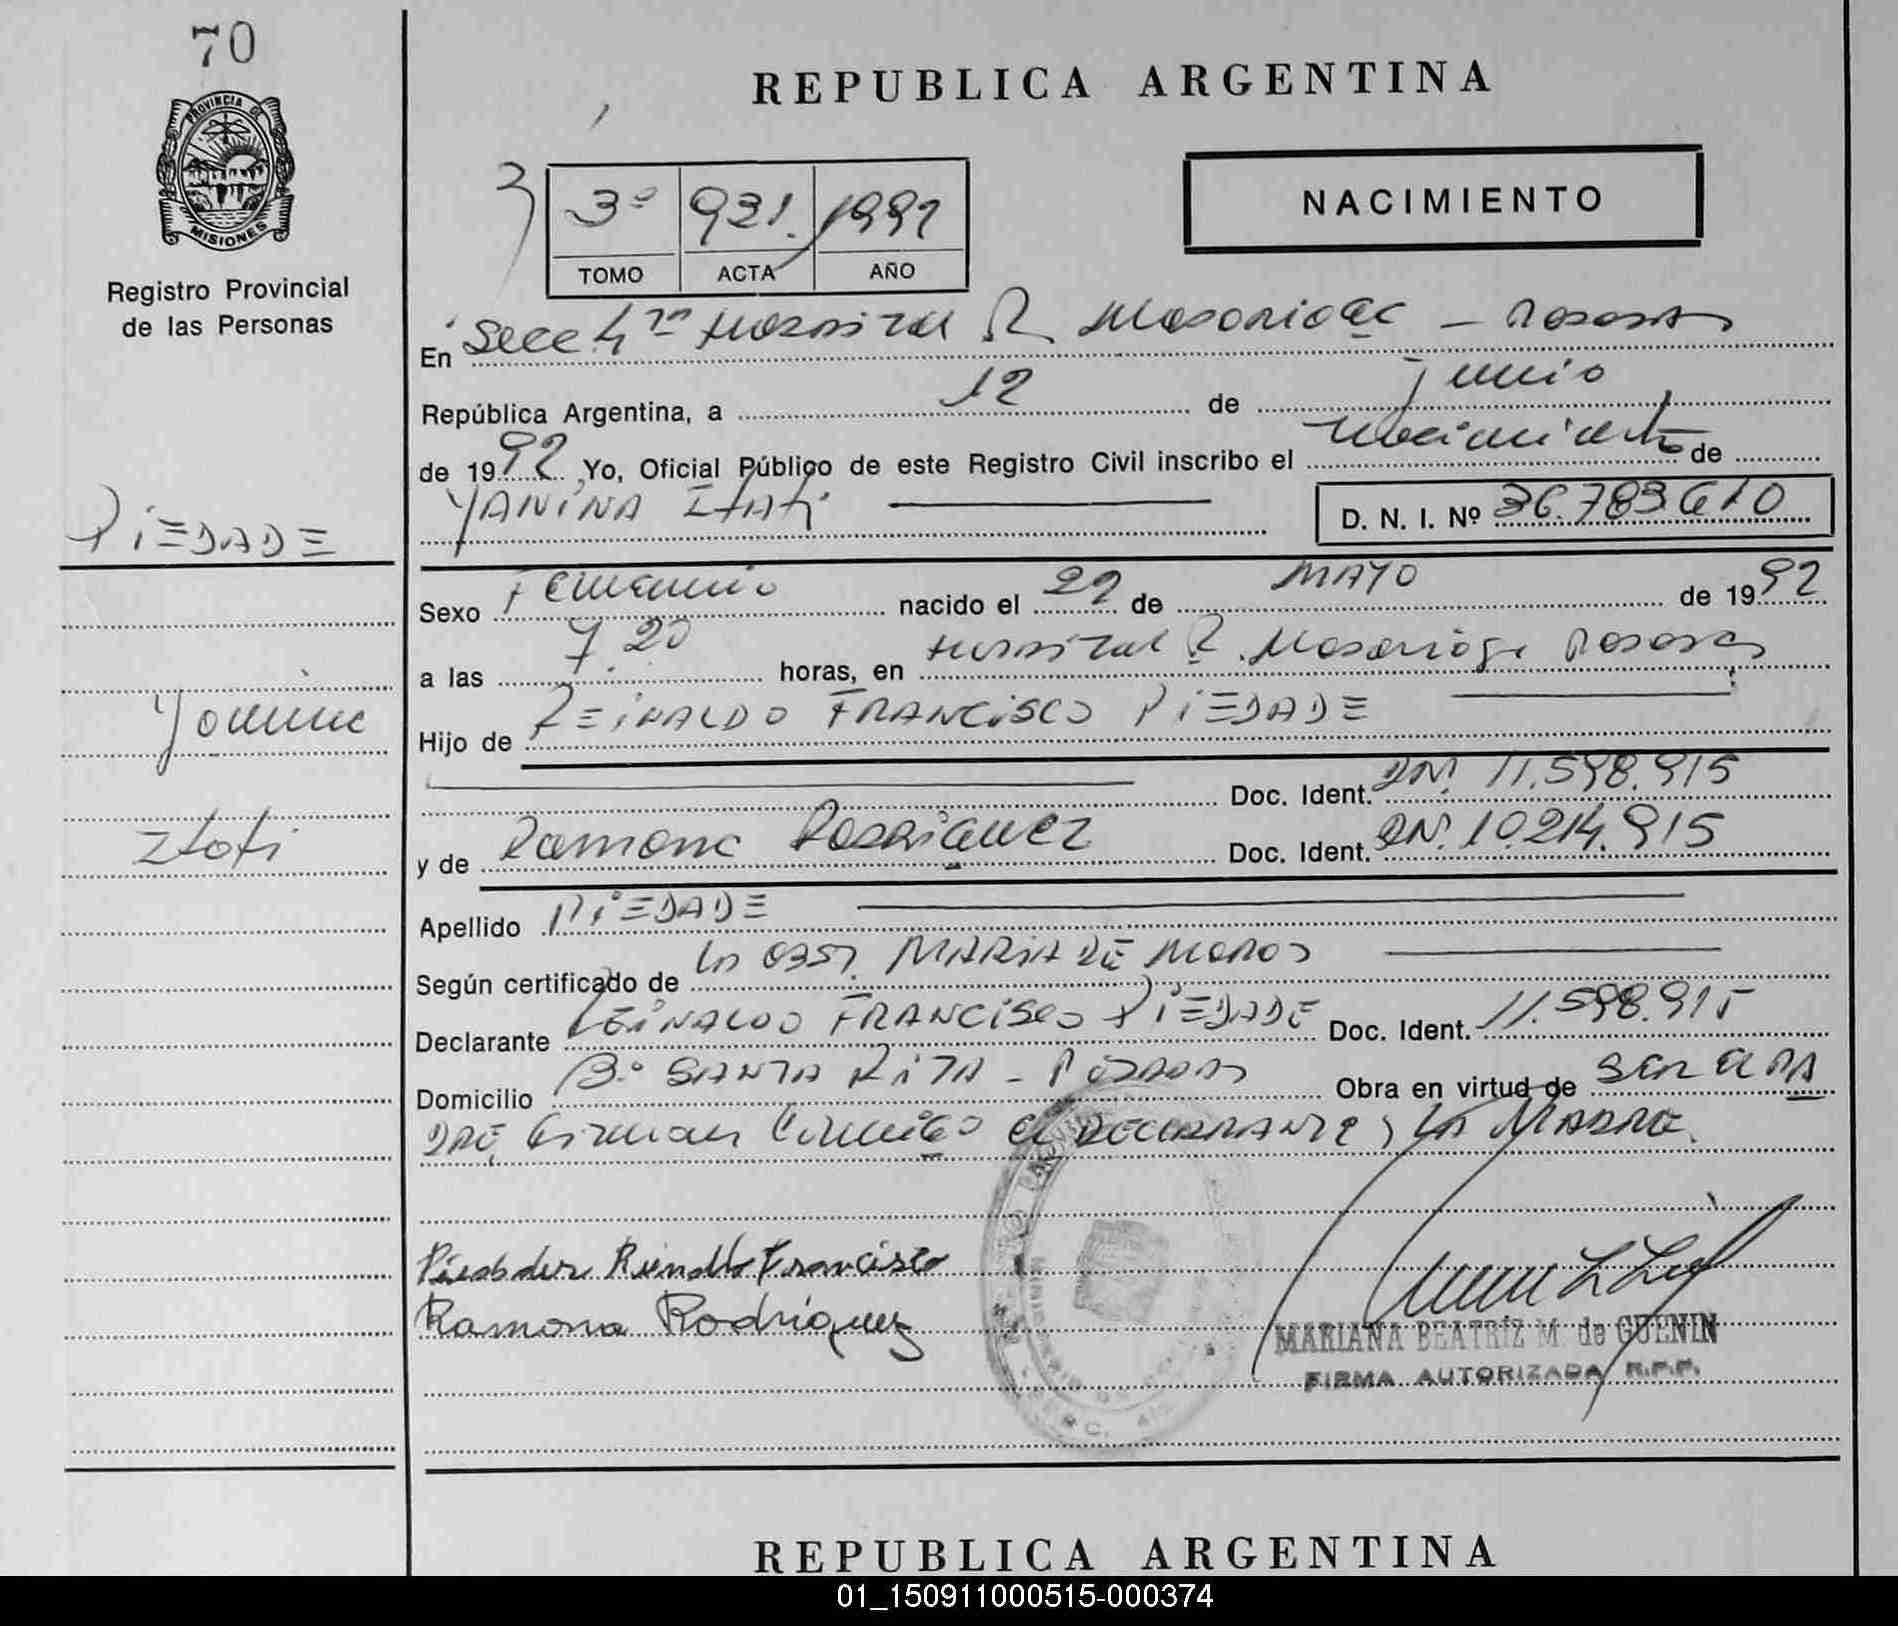 70
PROVINCIA DE
MISIONES
Registro Provincial
de las Personas
PIEDADE
Yanina
Itatí
REPUBLICA ARGENTINA
3º 921. 1992
TOMO ACTA AÑO
NACIMIENTO
En Secc 4ta Hospital R Madariaga - Posadas
República Argentina, a 12 de Junio
de 1992 Yo, Oficial Público de este Registro Civil inscribo el nacimiento de
YANINA Itatí
D. N. I. Nº 36.783.610
Sexo Femenino nacido el 22 de MAYO de 1992
a las 7.20 horas, en Hospital R. Madariaga Posadas
Hijo de REINALDO FRANCISCO PIEDADE
Doc. Ident. DNI 11.598.915
y de Ramona Rodriguez Doc. Ident. DNI. 10.214.915
Apellido PIEDADE
Según certificado de La Obst. MARIA DE
Declarante REINALDO FRANCISCO PIEDADE Doc. Ident. 11.598.915
Domicilio Bº SANTA RITA - POSADAS Obra en virtud de SER EL PA
DRE, Firman Conmigo El DECLARANTE y LA MADRE.
Francisco
Ramona Rodriguez
MARIANA BEATRIZ M. de GUENIN
FIRMA AUTORIZADA R.P.P.
REPUBLICA ARGENTINA
01_150911000515-000374